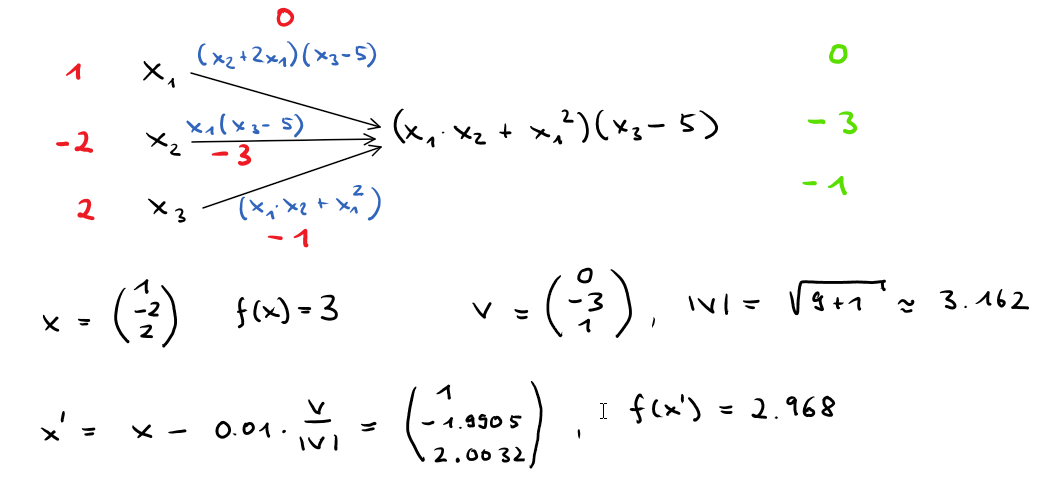 0
(x₂+2x₁)(x₃-5)
0
1 x₁
x₁(x₃-5)
(x₁·x₂ + x₁²)(x₃-5)
-3
-2 x₂
-3
2 x₃
(x₁·x₂ + x₁²)
-1
-1
x = (1 -2 2) f(x) = 3 v = (0 -3 1), |v| = √9+1 ≈ 3.162
x' = x - 0.01 · v/|v| = (1 -1.9905 2.0032), f(x') = 2.968